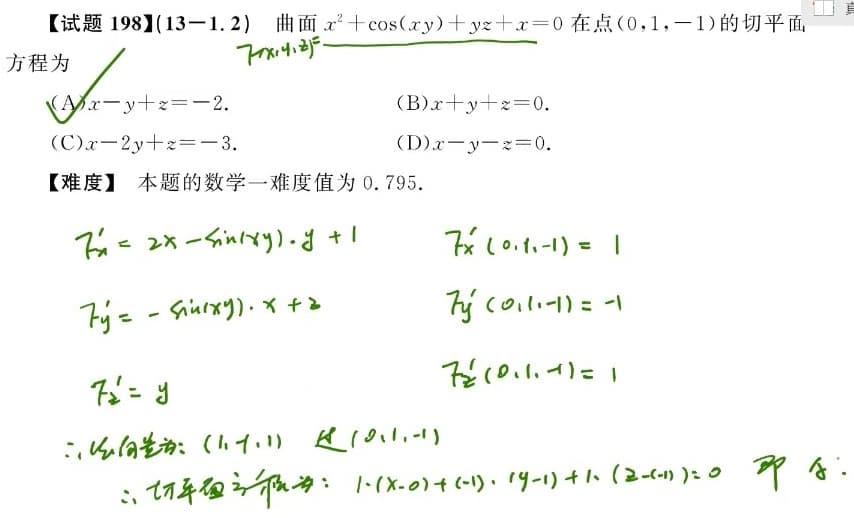 【试题 198】(13-1.2) 曲面 x²+cos(xy)+yz+x=0 在点(0,1,-1)的切平面
F(x,y,z)=
方程为
(A)x-y+z=-2. (B)x+y+z=0.
(C)x-2y+z=-3. (D)x-y-z=0.
【难度】 本题的数学一难度值为 0.795.
Fx' = 2x-sin(xy)·y+1 Fx'(0,1,-1)= 1
Fy' = -sin(xy)·x+z Fy'(0,1,-1)= -1
Fz' = y Fz'(0,1,-1)= 1
∴法向量为: (1,-1,1) 过(0,1,-1)
∴切平面方程为: 1·(x-0)+(-1)·(y-1)+1·(z-(-1))=0 即